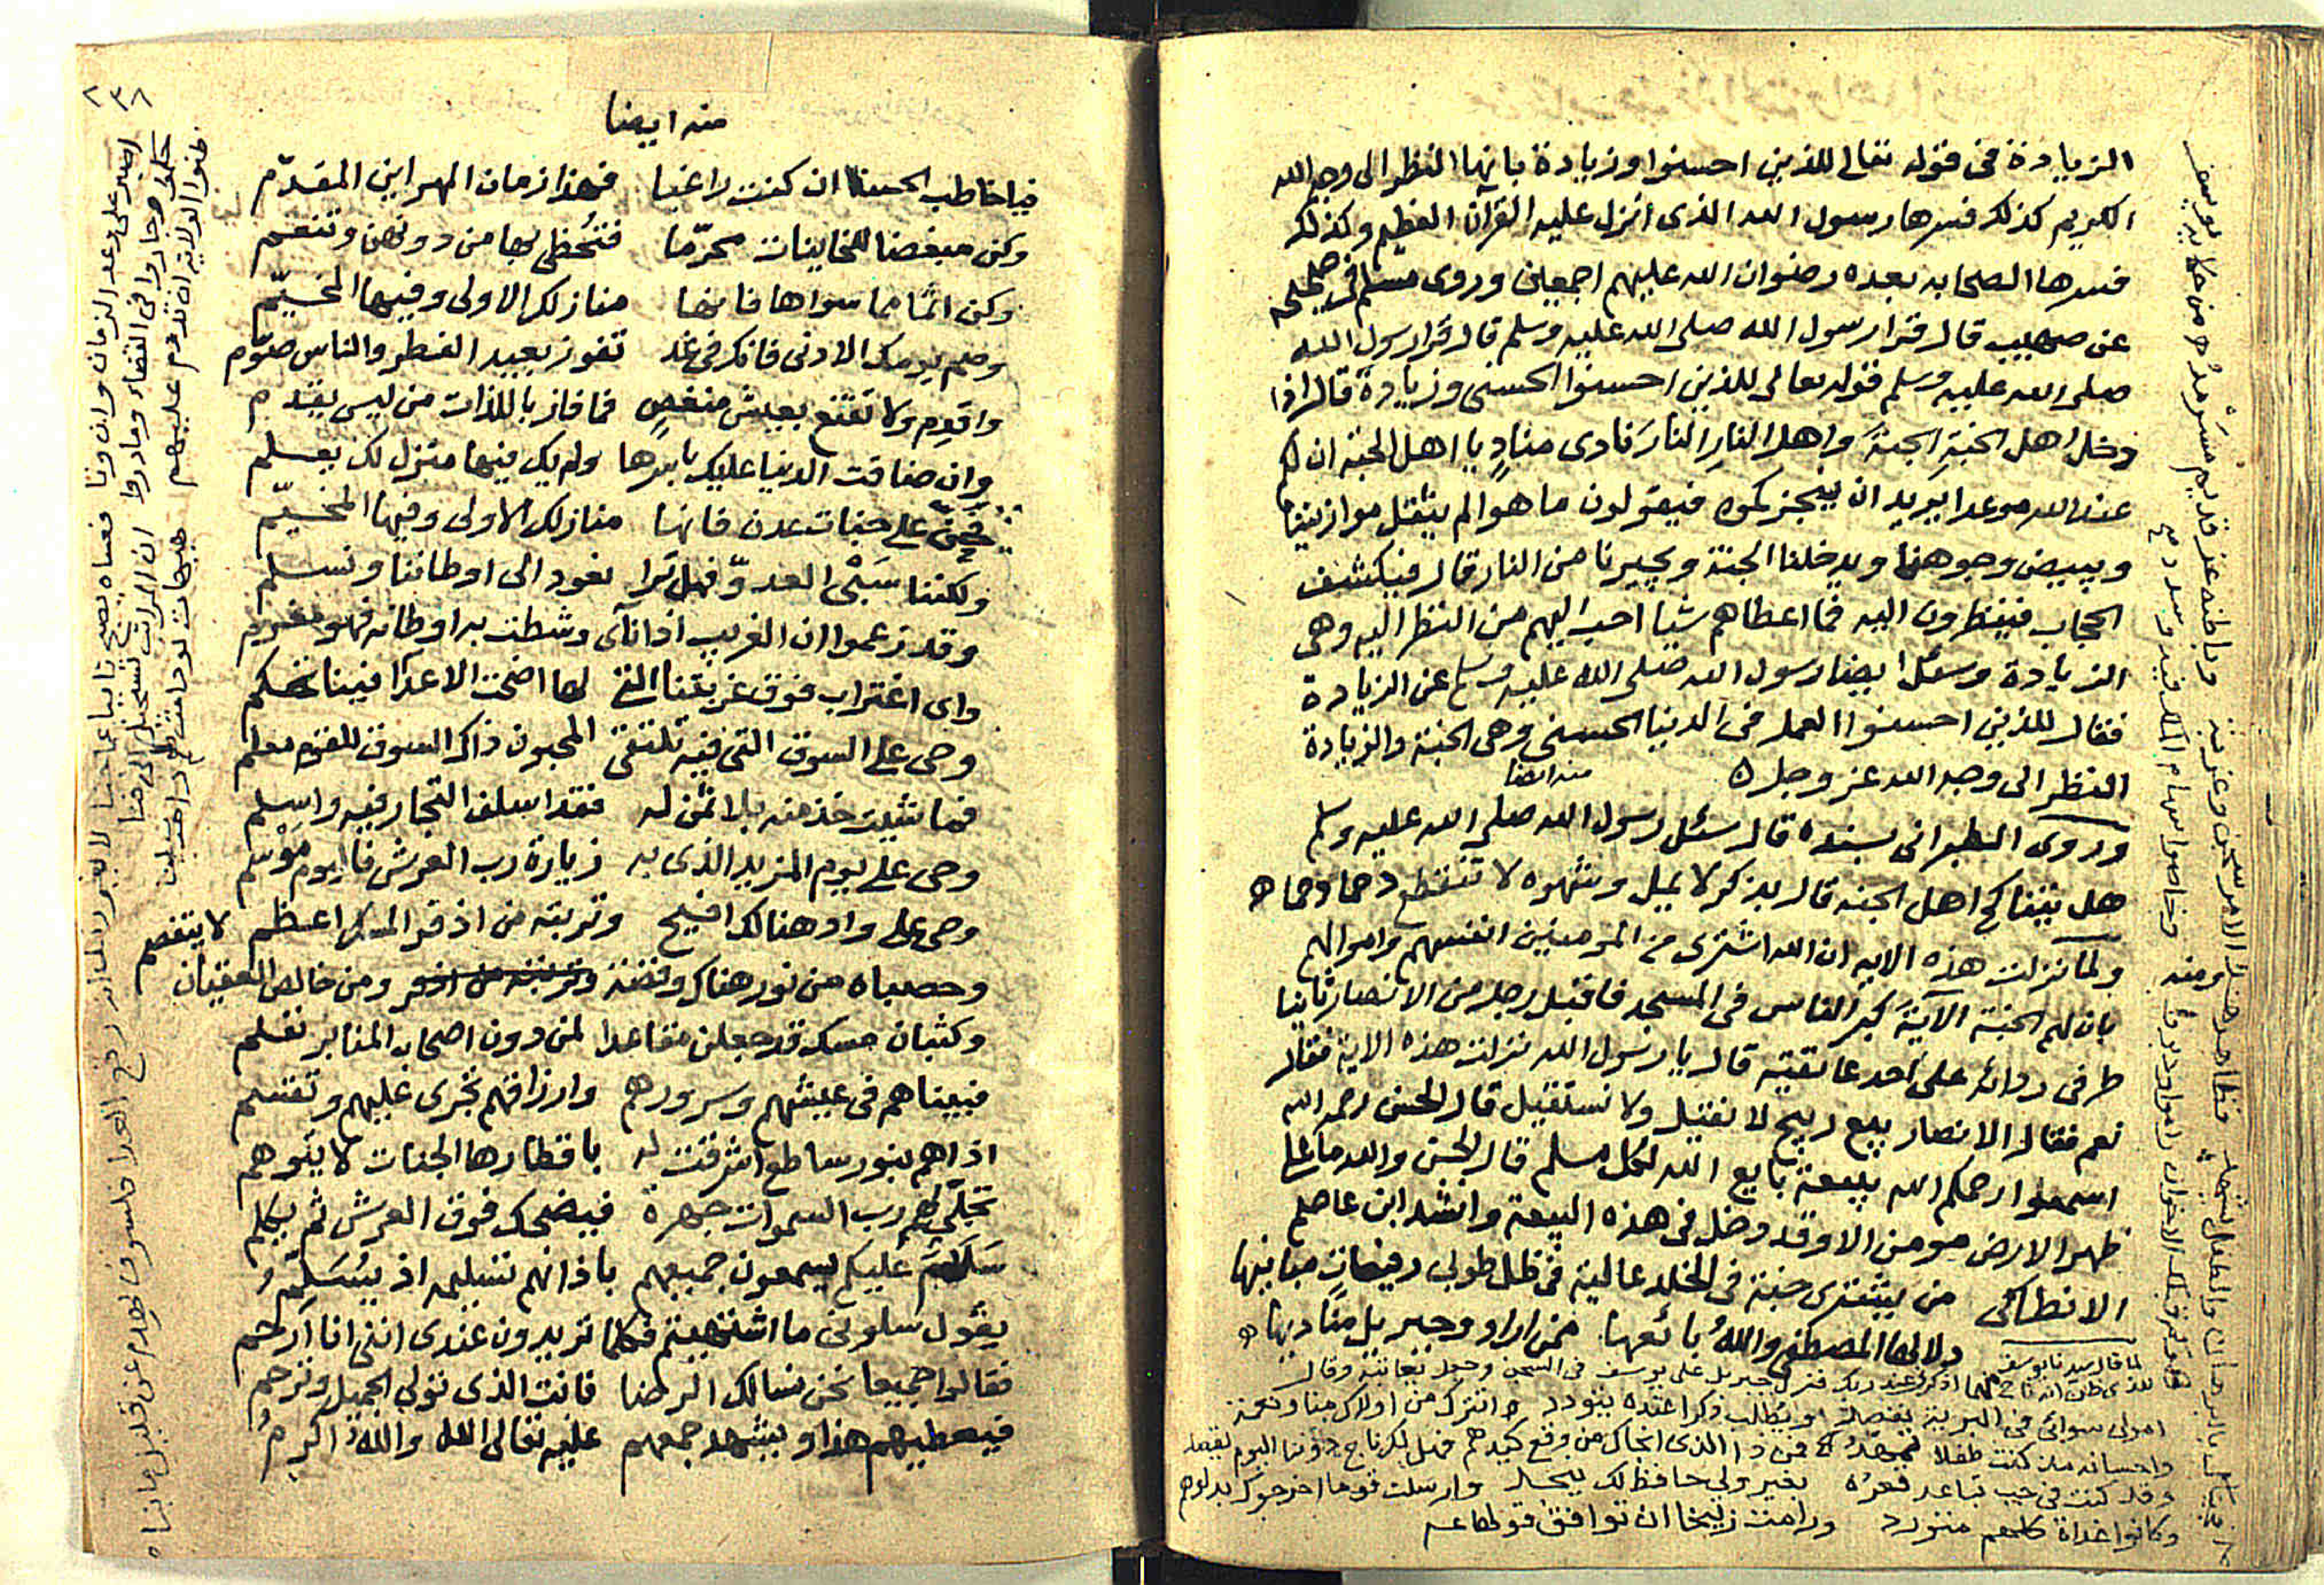 الزيادة في قوله تعالى للذين احسنوا وزيادة بانها النظر الى وجه الله
الكريم كذلك فسرها رسول الله الذى انزل عليه القرآن العظيم وكذلك
فسرها الصحابه بعده رضوان الله عليهم اجمعين وروى مسلم في صحيحه
عن صهيب قال قرا رسول الله صلى الله عليه وسلم قال قرا رسول الله
صلى الله عليه وسلم قوله تعالى للذين احسنوا الحسنى وزيادة قال اذا
دخل اهل الجنةِ الجنةَ واهل النارِ النارَ نادى منادٍ يا اهل الجنة ان لكم
عند الله موعدا يريد ان ينجزكموه فيقولون ما هو الم يثقل موازيننا
ويبيض وجوهنا ويدخلنا الجنة ويجيرنا من النار قال فيكشف
الحجاب فينظرون اليه فما اعطاهم شيا احب اليهم من النظر اليه وهى
الزيادة وسئل ايضا رسول الله صلى الله عليه وسلم عن الزيادة
فقال للذين احسنوا العمل في الدنيا الحسنى وهى الجنة والزيادة
النظر الى وجه الله عز وجل ٥ منه ايضا
وروى الطبرانى بسنده قال سئل رسول الله صلى الله عليه وسلم
هل يتناكح اهل الجنة قال بذكر لا يميل وشهوه لا تنقطع دحما دحما ٥
ولما نزلت هذه الايه ان الله اشترى من المومنين انفسهم واموالهم
بان لهم الجنة الآية كبر الناس في المسجد فاقبل رجل من الانصار ثانيا
طرفى ردائه على احد عاتقيه قال يا رسول الله نزلت هذه الاية فقال
نعم فقال الانصار بيع ربيح لا نقيل ولا نستقيل قال الحسن رحمه الله
اسمعوا رحمكم الله بيعة بايع الله لكل مسلم قال الحسن والله ما على
ظهر الارض مومن الا وقد دخل في هذه البيعة وانشد ابن عاصم
الانطاكى من يشترى جنة في الخلد عالية في ظل طوبى رفيعات مبانيها
دلالها المصطفى واللهُ بائعها ممن اراد وجبريل مناديها ٥
لما قال سيدنا يوسف
للذى ظن انه ناج منهما اذكرنى عند ربك فنزل جبريل على يوسف في السجن وجعل يعاتبه وقال
امولى سوائى في البرية يقصد او يطالب ذكرا عنده يتودد
واحسانه مذ كنت طفلا فمن ذا الذى انجاك من وقع كيدهم
وقد كنت في جب تباعد قعره بغير ولى حافظ لك ينجد وارسلت قوما اخرجوك بدلوهم
وكانوا غداة كلهم وراحت زليخا ان توافق قولها
منه ايضا
فيا خاطب الحسنا ان كنت راغبا فهذا زمان المهر اين المقدّم
وكن مبغضا للخاينات محرّما فتُحظى بها من دونهن وتنعم
وكن اثما مما سواها فانها منازلك الاولى وفيها المخيّم
وصم يومك الادنى فانك في غد تفوز بعيد الفطر والناس صوّم
واقدم ولا تقنع بعيش منغص فما فاز باللذات من ليس يقدم
وان ضاقت الدنيا عليك باسرها ولم يك فيها منزل لك يعلم
فحىّ على جنات عدن فانها منازلك الاولى وفيها المخيّم
ولكننا سَبْى العدوّ فهل تَرا نعود الى اوطاننا ونسلم
وقد زعموا ان الغريب اذا نآى وشطت به اوطانه فهو مغرم
واى اغتراب فوق غربتنا التى لها اضحت الاعدا فينا تحكم
وحى على السوق التى فيه تلتقى المحبون ذاك السوق للقوم معلم
فما شيت خذ منه بلا ثمن له فقد اسلف التجار فيه واسلم
وحى على يوم المزيد الذى به زيارة رب العرش فاليوم مَوْسم
وحى على واد هنالك افيح وتربته من اذفر المسك اعظم
وحصباه من نور هناك وفضة ومن خالص العقيان لا يتفصم
وكثبان مسك قد جعلن مقاعدا لمن دون اصحاب المنابر تعلم
فبيناهم في عيشهم وسرورهم وارزاقهم تجرى عليهم وتقسم
اذا هم بنور ساطع اشرقت له باقطارها الجنات لا يتوهم
تجلّى لهم رب السموات جهرة فيضحك فوق العرش ثم يكلم
سَلَامٌ عليكم يسمعون جميعهم باذانهم تسليمه اذ يُسَلِّمُ
يقول سلونى ما اشتهيتم فكلما تريدون عندى اننى انا ارحم
فقالوا جميعا نحن نسالك الرضا فانت الذى تولي الجميل وترحم
فيعطيهم هذا ويشهد جمعهم عليه تعالى الله والله اكرمُ
٢٣٨
اصبر على رعد الزمان وان ونا فعساه يصبح تايبا عما جنا